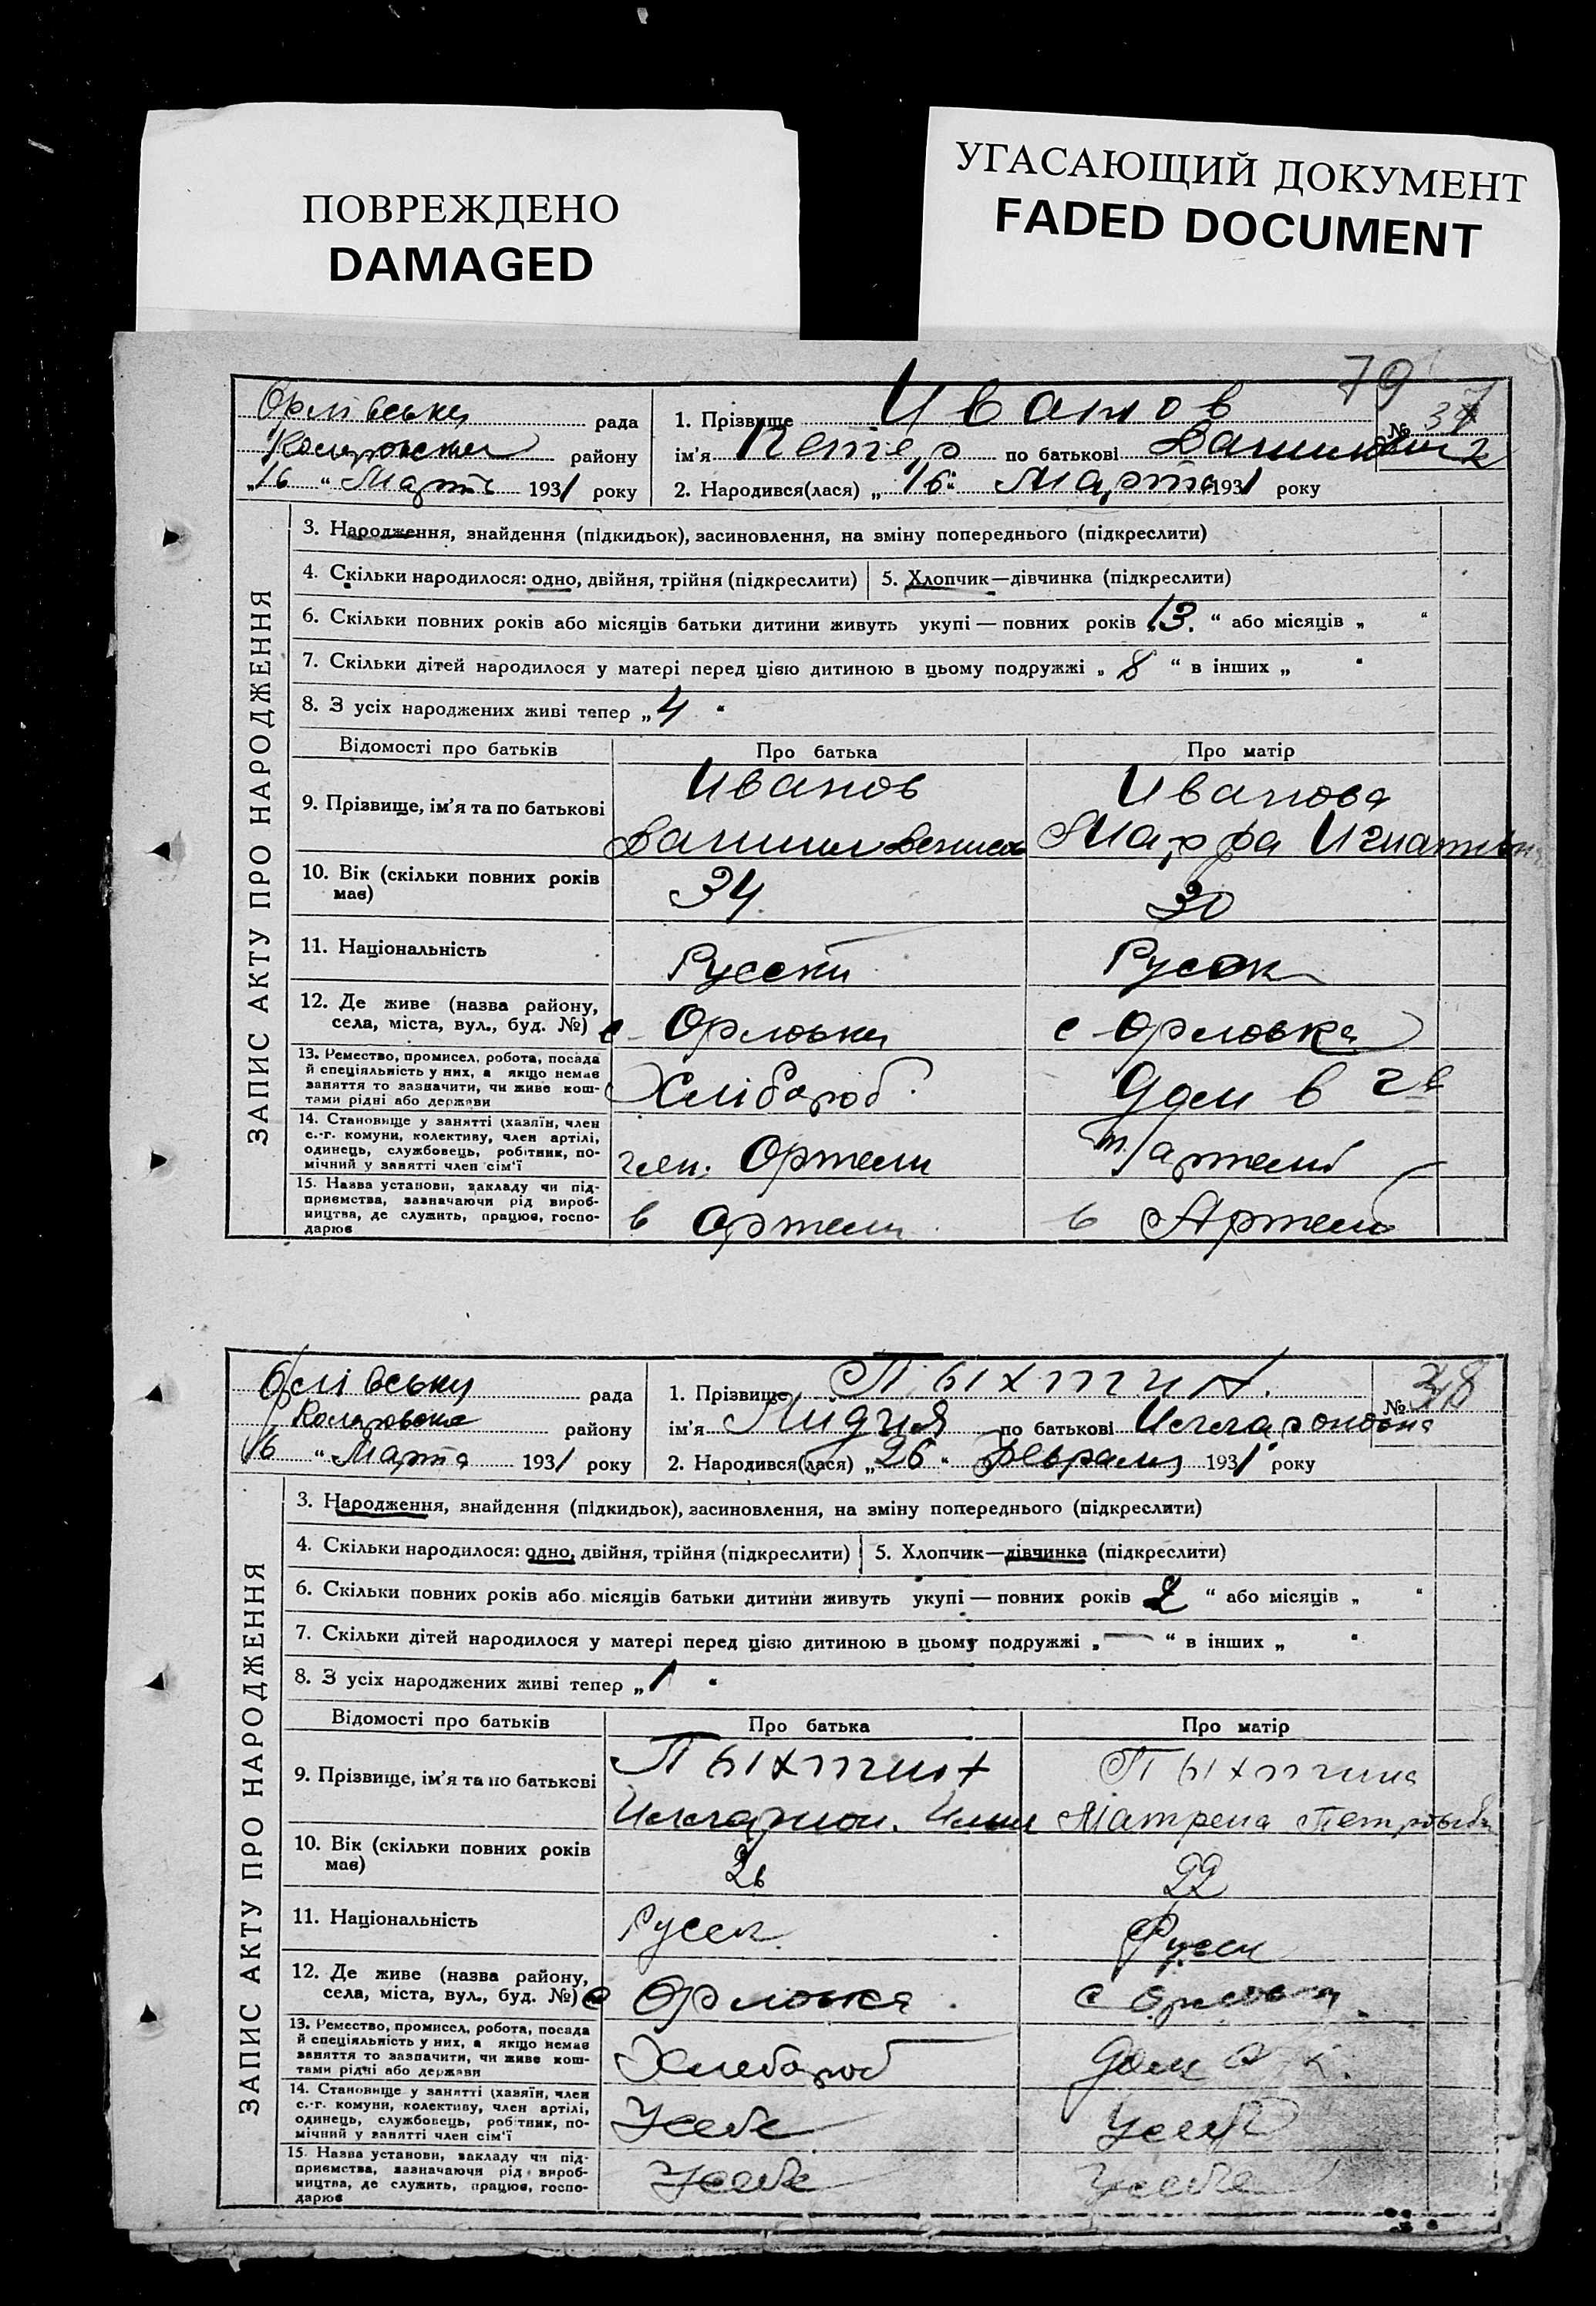 ПОВРЕЖДЕНО
DAMAGED
УГАСАЮЩИЙ ДОКУМЕНТ
FADED DOCUMENT
79
ЗАПИС АКТУ ПРО НАРОДЖЕННЯ
рада
району
„16 “ Марта 1931 року
1. Прізвище Иванов
№ 37
ім’я по батькові
2. Народився(лася) „16“ Марта 1931 року
3. Народження, знайдення (підкидьок), засиновлення, на зміну попереднього (підкреслити)
4. Скільки народилося: одно, двійня, трійня (підкреслити)
5. Хлопчик—дівчинка (підкреслити)
6. Скільки повних років або місяців батьки дитини живуть укупі — повних років 13. “ або місяців „ “
7. Скільки дітей народилося у матері перед цією дитиною в цьому подружжі „ 8 “ в інших „ “
8. З усіх народжених живі тепер „ 4 “
Відомості про батьків Про батька Про матір
9. Прізвище, ім’я та по батькові
Иванов
Иванова
Марфа
10. Вік (скільки повних років має)
34
30
11. Національність
Русски
12. Де живе (назва району, села, міста, вул., буд. №)
с Орловка
с Орловка
13. Ремество, промисел, робота, посада
й спеціяльність у них, а якщо немає
заняття то зазначити, чи живе кош-
тами рідні або держави
Хлібороб
14. Становище у занятті (хазяїн, член
с.-г. комуни, колективу, член артілі,
одинець, службовець, робітник, по-
мічний у занятті член сім’ї
член. Ортели
15. Назва установи, закладу чи під-
приємства, зазначаючи рід вироб-
ництва, де служить, працює, госпо-
дарює
в Ортели
в Артели
ЗАПИС АКТУ ПРО НАРОДЖЕННЯ
рада
району
16 “ Марта 1931 року
1. Прізвище Пыхтин
№ 38
ім’я Лидия по батькові
2. Народився(лася) „ 26 “ Февраля 1931 року
3. Народження, знайдення (підкидьок), засиновлення, на зміну попереднього (підкреслити)
4. Скільки народилося: одно, двійня, трійня (підкреслити)
5. Хлопчик—дівчинка (підкреслити)
6. Скільки повних років або місяців батьки дитини живуть укупі — повних років 2 “ або місяців „ “
7. Скільки дітей народилося у матері перед цією дитиною в цьому подружжі „ — “ в інших „ “
8. З усіх народжених живі тепер „ 1 “
Відомості про батьків Про батька Про матір
9. Прізвище, ім’я та по батькові
Пыхтин
Пыхтина
Матрена
10. Вік (скільки повних років має)
26
22
11. Національність
12. Де живе (назва району, села, міста, вул., буд. №)
с Орловка
13. Ремество, промисел, робота, посада
й спеціяльність у них, а якщо немає
заняття то зазначити, чи живе кош-
тами рідні або держави
Хлебороб
14. Становище у занятті (хазяїн, член
с.-г. комуни, колективу, член артілі,
одинець, службовець, робітник, по-
мічний у занятті член сім’ї
У себе
У себе
15. Назва установи, закладу чи під-
приємства, зазначаючи рід вироб-
ництва, де служить, працює, госпо-
дарює
У себе
У себе